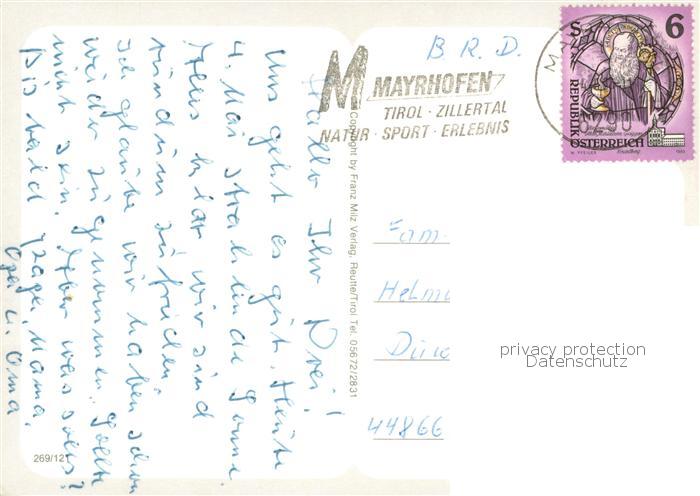 Hallo Ihr Drei!
Uns geht es gut. Heute
4. Mai strahlende Sonne.
Alles klar wir sind
rundum zufrieden
Ich glaube wir haben schon
wieder zugenommen. Sollte
nicht sein. Aber was solls?
Bis bald, Mama,
Opa u. Oma
269/121
Copyright by Franz Milz Verlag, Reutte/Tirol Tel. 05672/2831
B. R. D.
M MAYRHOFEN
TIROL · ZILLERTAL
NATUR · SPORT · ERLEBNIS
S 6
REPUBLIK
ÖSTERREICH
1993
Fam.
Helmu
44866
privacy protection
Datenschutz